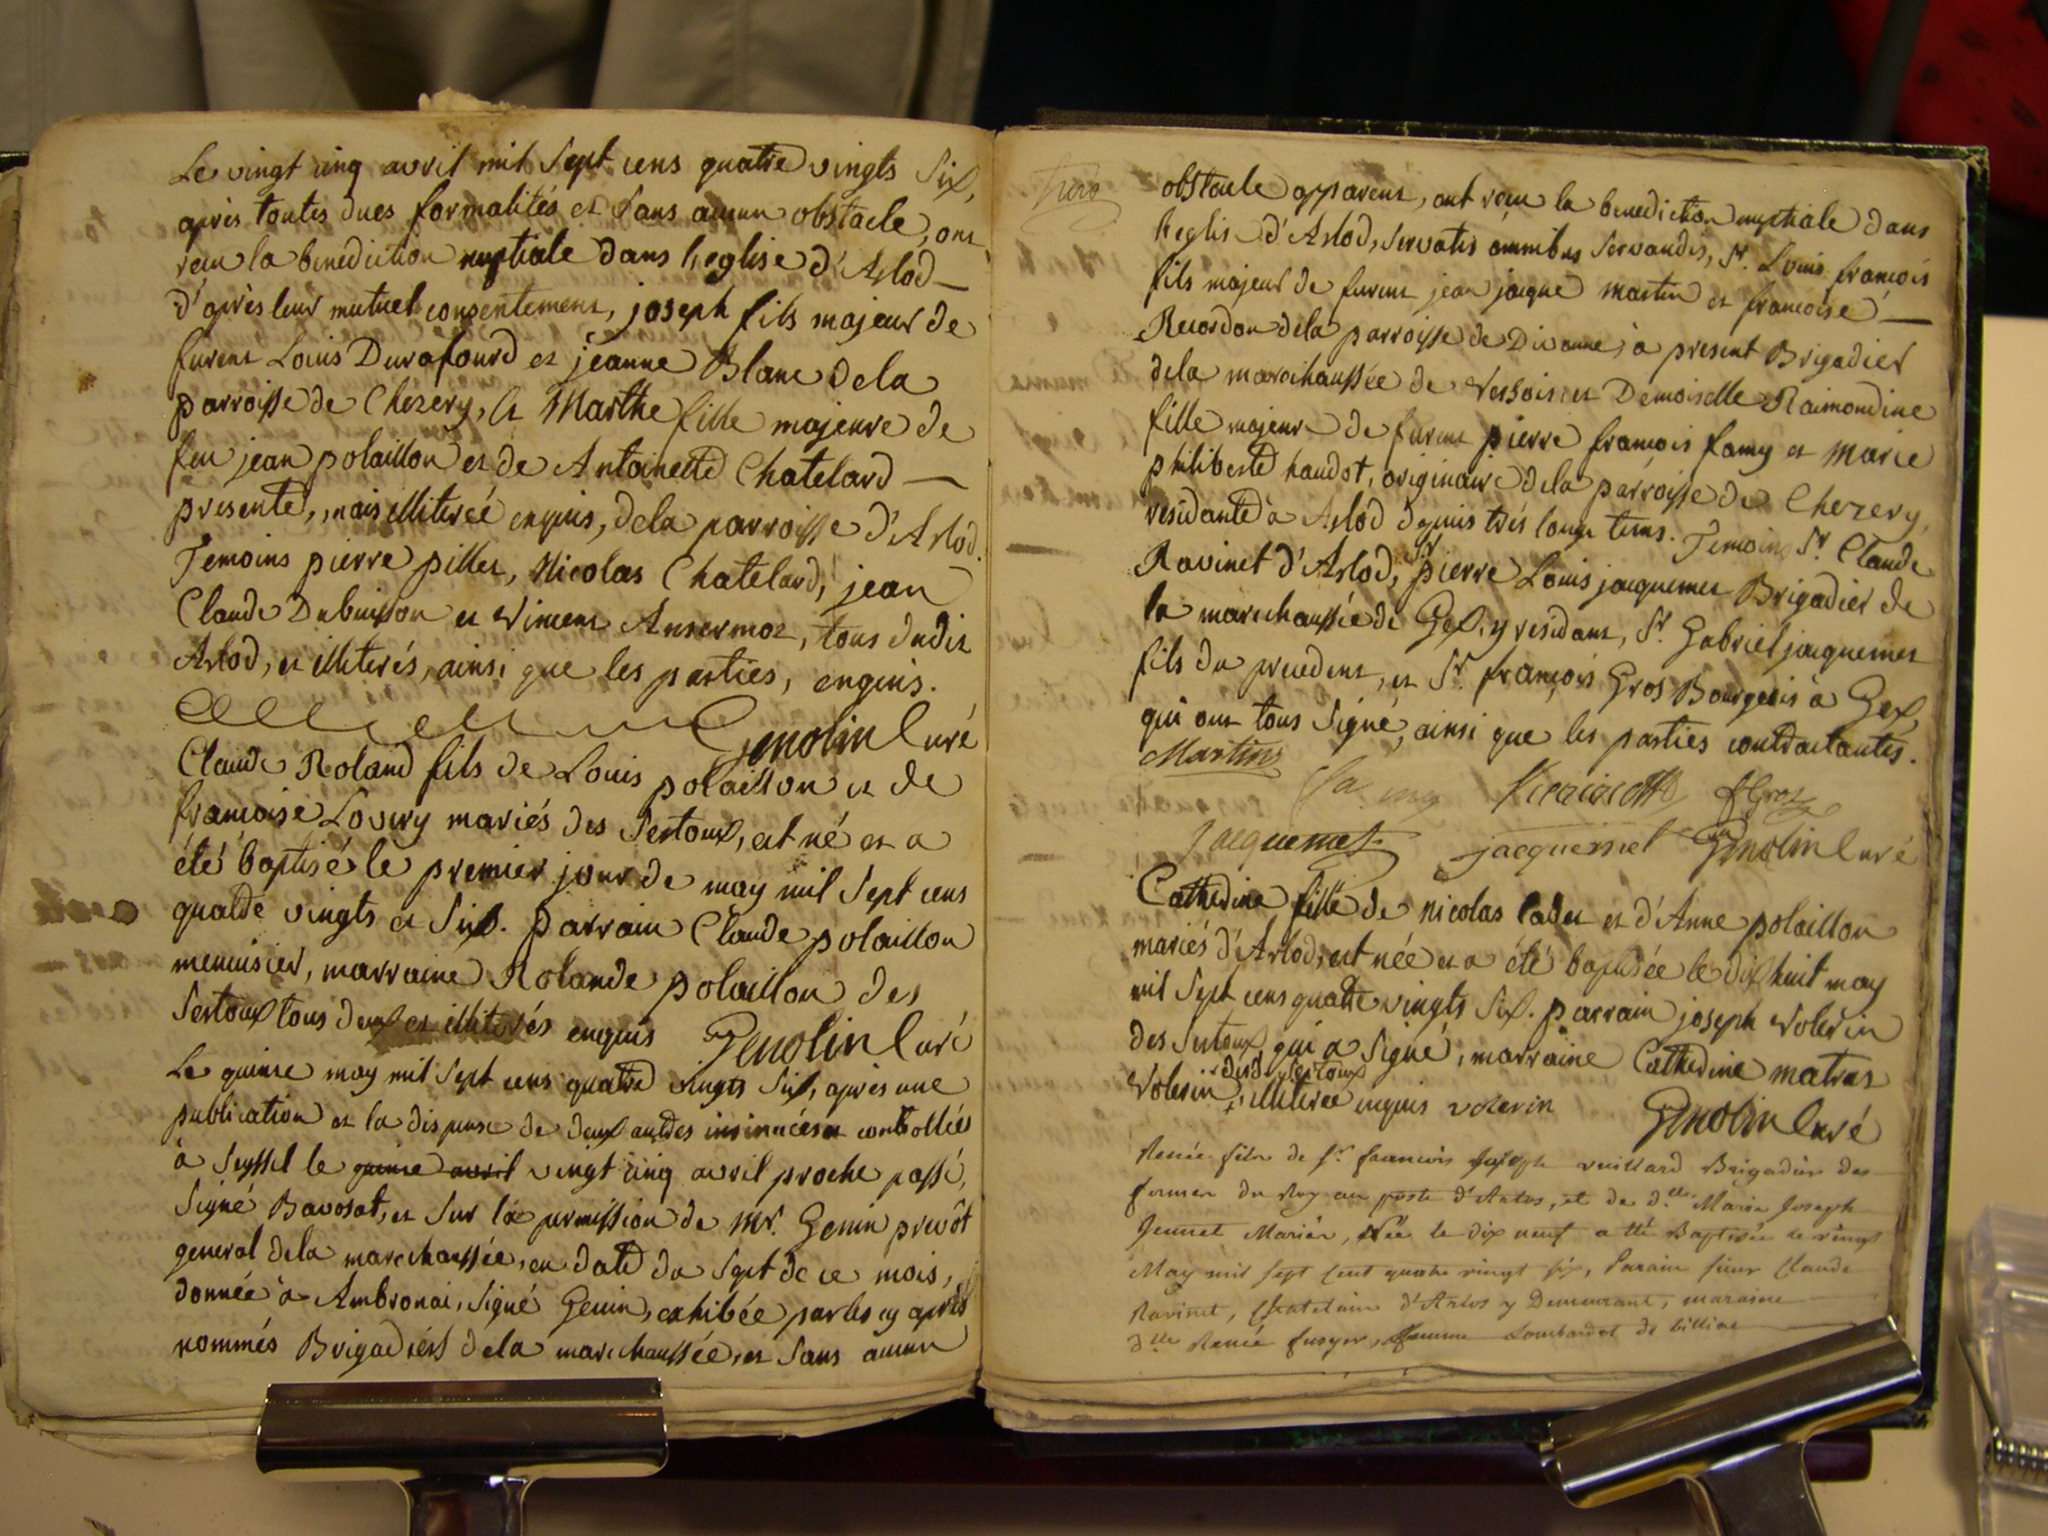 Le vingt cinq avril mil sept cens quatre vingts six,
après toutes dues formalités et sans aucun obstacle, ont
recu la benediction nuptiale dans l'eglise d'Arlod
d'après leur mutuel consentement, joseph fils majeur de
furent Louis Durafourd et jeanne Blanc de la
parroisse de Chézery, et Marthe fille majeure de
feu jean polaillon et de Antoinette Chatelard
presente, mais illiterée enquis, dela parroisse d'Arlod.
Temoins pierre pillet, Nicolas Chatelard, jean
Claude Dubuisson et Vincent Ansermoz, tous dudit
Arlod, et illiterés, ainsi que les parties, enquis.
Genolin Curé
Claude Roland fils de Louis polaillon et de
francoise Lovery mariés des Sertoux, est né et a
été baptisé le premier jour de may mil sept cens
quatre vingts et six. parrain Claude polaillon
menuisier, marraine Rolande polaillon des
Sertoux tous deux et illiterés enquis Genolin Curé
Le quinse may mil sept cens quatre vingts six, après une
publication et la dispense de deux autres insinuées et controllée
à Seyssel le quinse avril vingt cinq avril proche passé,
signé Bavosat, et sur la permission de Mr. Genin prevôt
general dela marechaussée, en date du sept de ce mois,
donnée à Ambronai, signé Genin, exhibée par les cy après
nommés Brigadiers dela marechaussée, et sans aucun
obstacle apparent, ont recu la benediction nuptiale dans
l'eglise d'Arlod, servatis omnibus servandis, Sr. Louis francois
fils majeur de furent jean jacque Martin et francoise
Recordon dela parroisse de Divonne, à present Brigadier
dela marechaussée de Versois: et Demoiselle Raimondine
fille majeure de furent pierre francois famy et Marie
philiberte handot, originaire dela parroisse de Chezery,
residante à Arlod depuis trés long tems. Temoins Sr. Claude
Ravinet d'Arlod, Sr. pierre Louis jacquemet Brigadier de
la marechaussée de Gex, y residant, Sr. Gabriel jacquemet
fils du precedent, et Sr. françois Gros Bourgeois à Gex,
qui ont tous signé, ainsi que les parties contractantes.
Martin
fGros
Jacquemet jacquemet Genolin Curé
Catherine fille de nicolas Cadet et d'Anne polaillon
mariés d'Arlod, est née et a été baptisée le dix huit may
mil sept cens quatre vingts six. parrain joseph Volerin
des Sertoux, qui a signé, marraine Catherine matras
Volerin, illiterée enquis volerin Genolin Curé
Renée fille de Sr. francois Joseph vuillard Brigadier des
fermes du Roy au poste d'Arlos, et de dlle. Marie Joseph
Jeunet Mariés, Née le dix neuf a été Baptisée le vingt
May mil sept cent quatre vingt six, Parain sieur Claude
Ravinet, Chatelain d'Arlos y Demeurant, maraine
dlle Renée femme Lombardet de billiae